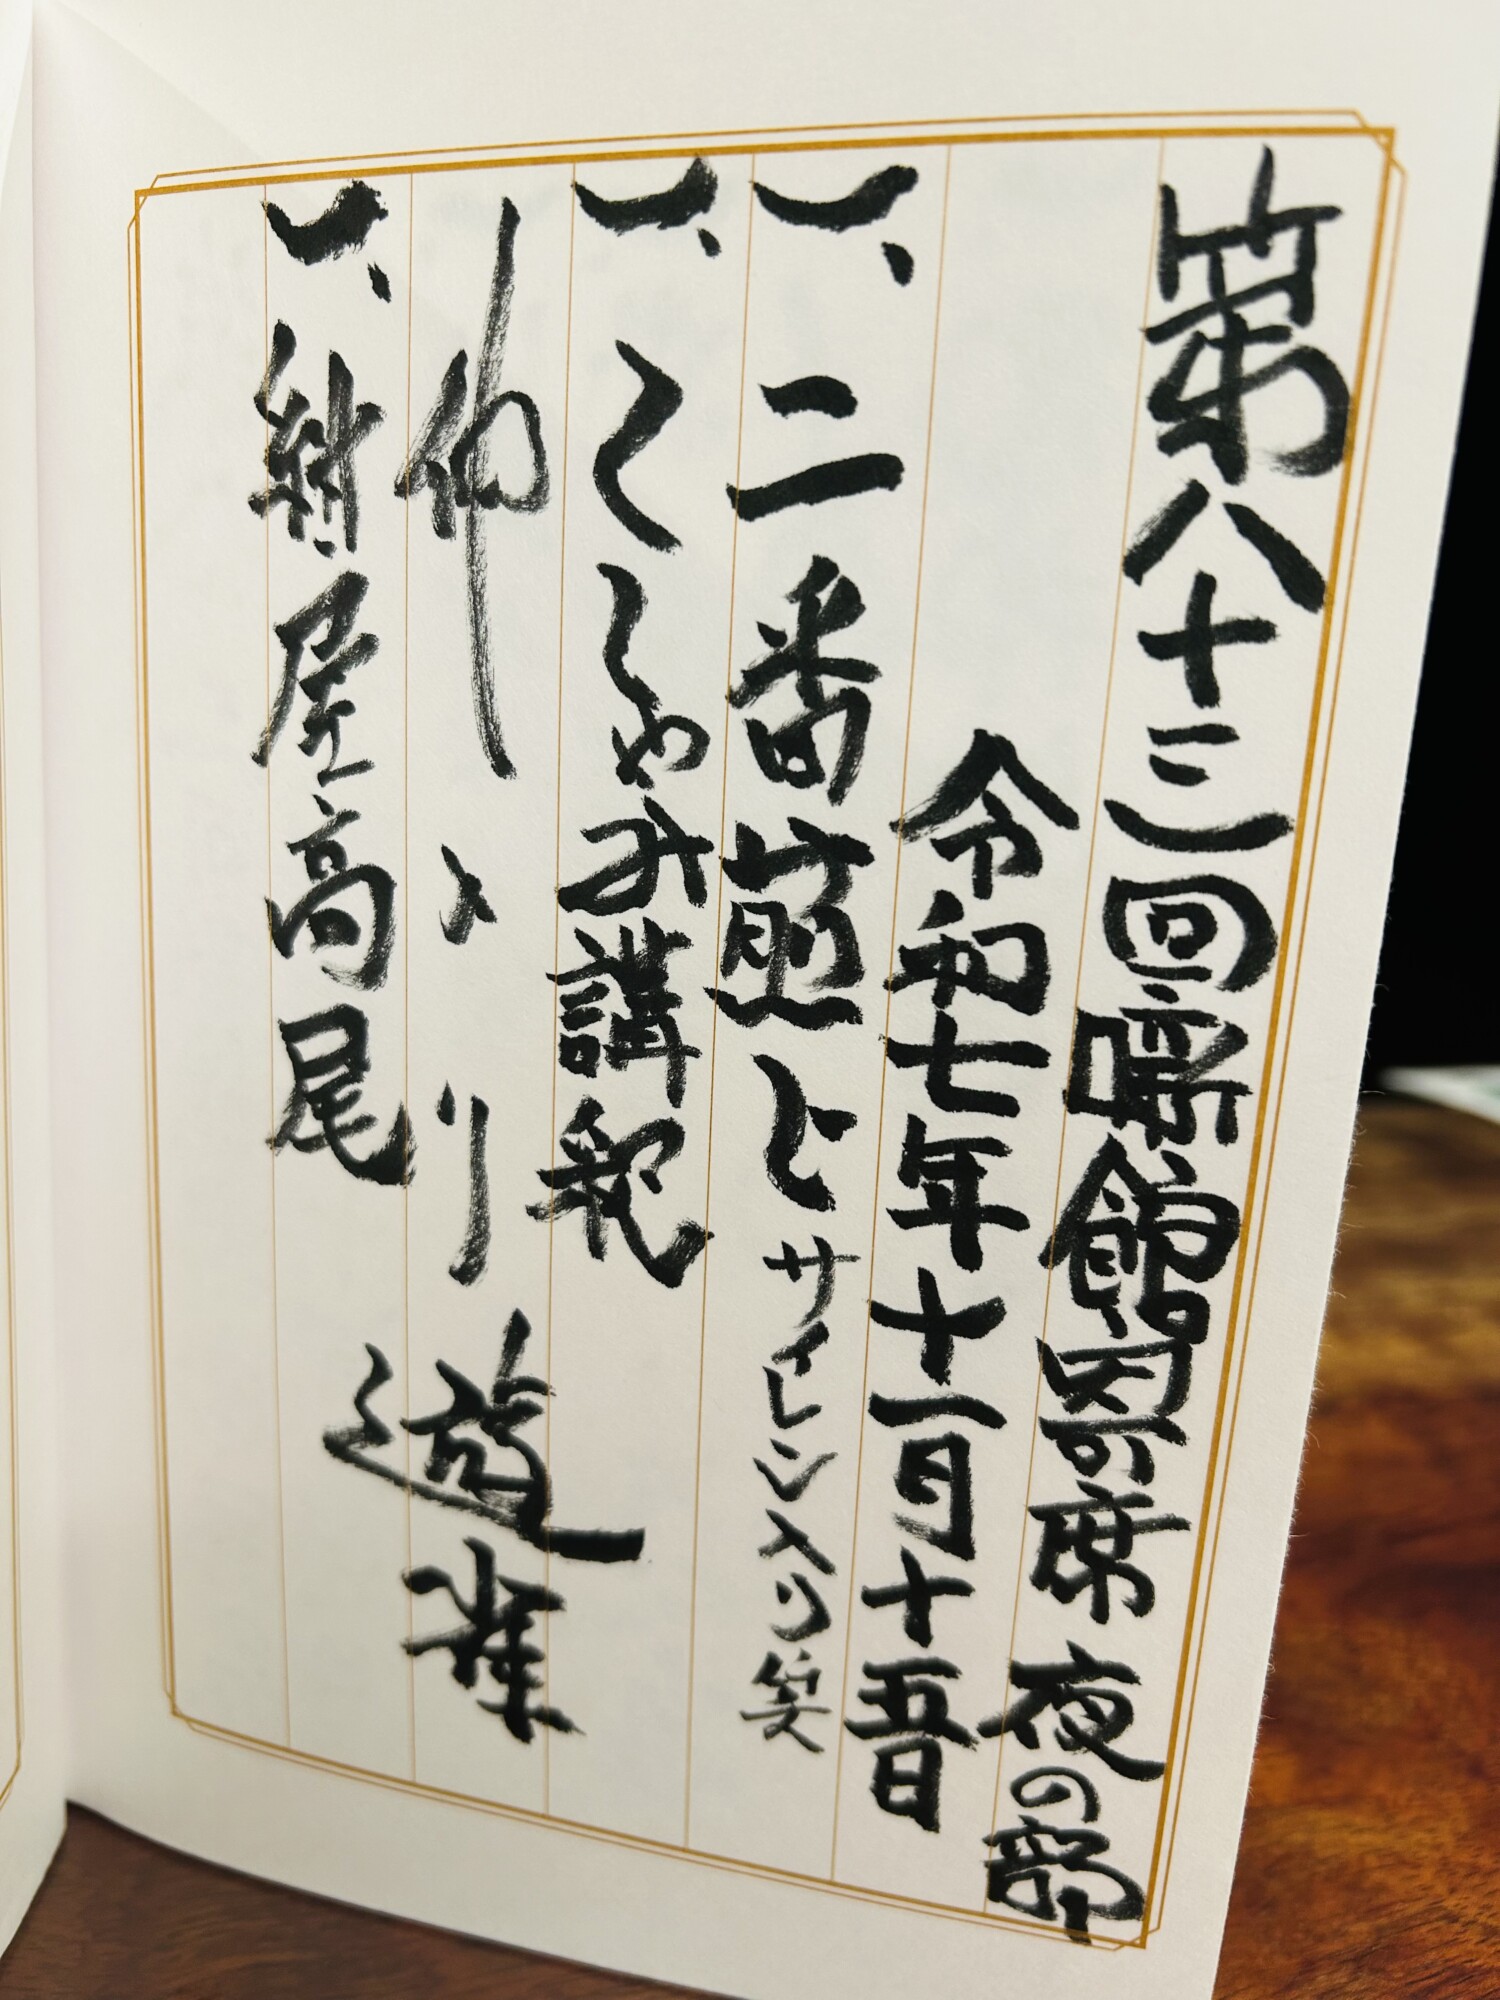 第八十三回噺館寄席 夜の部
令和七年十一月十五日
一、二番煎じ サイレン入り笑
一、くしゃみ講釈
仲トリ 遊雀
一、紺屋高尾